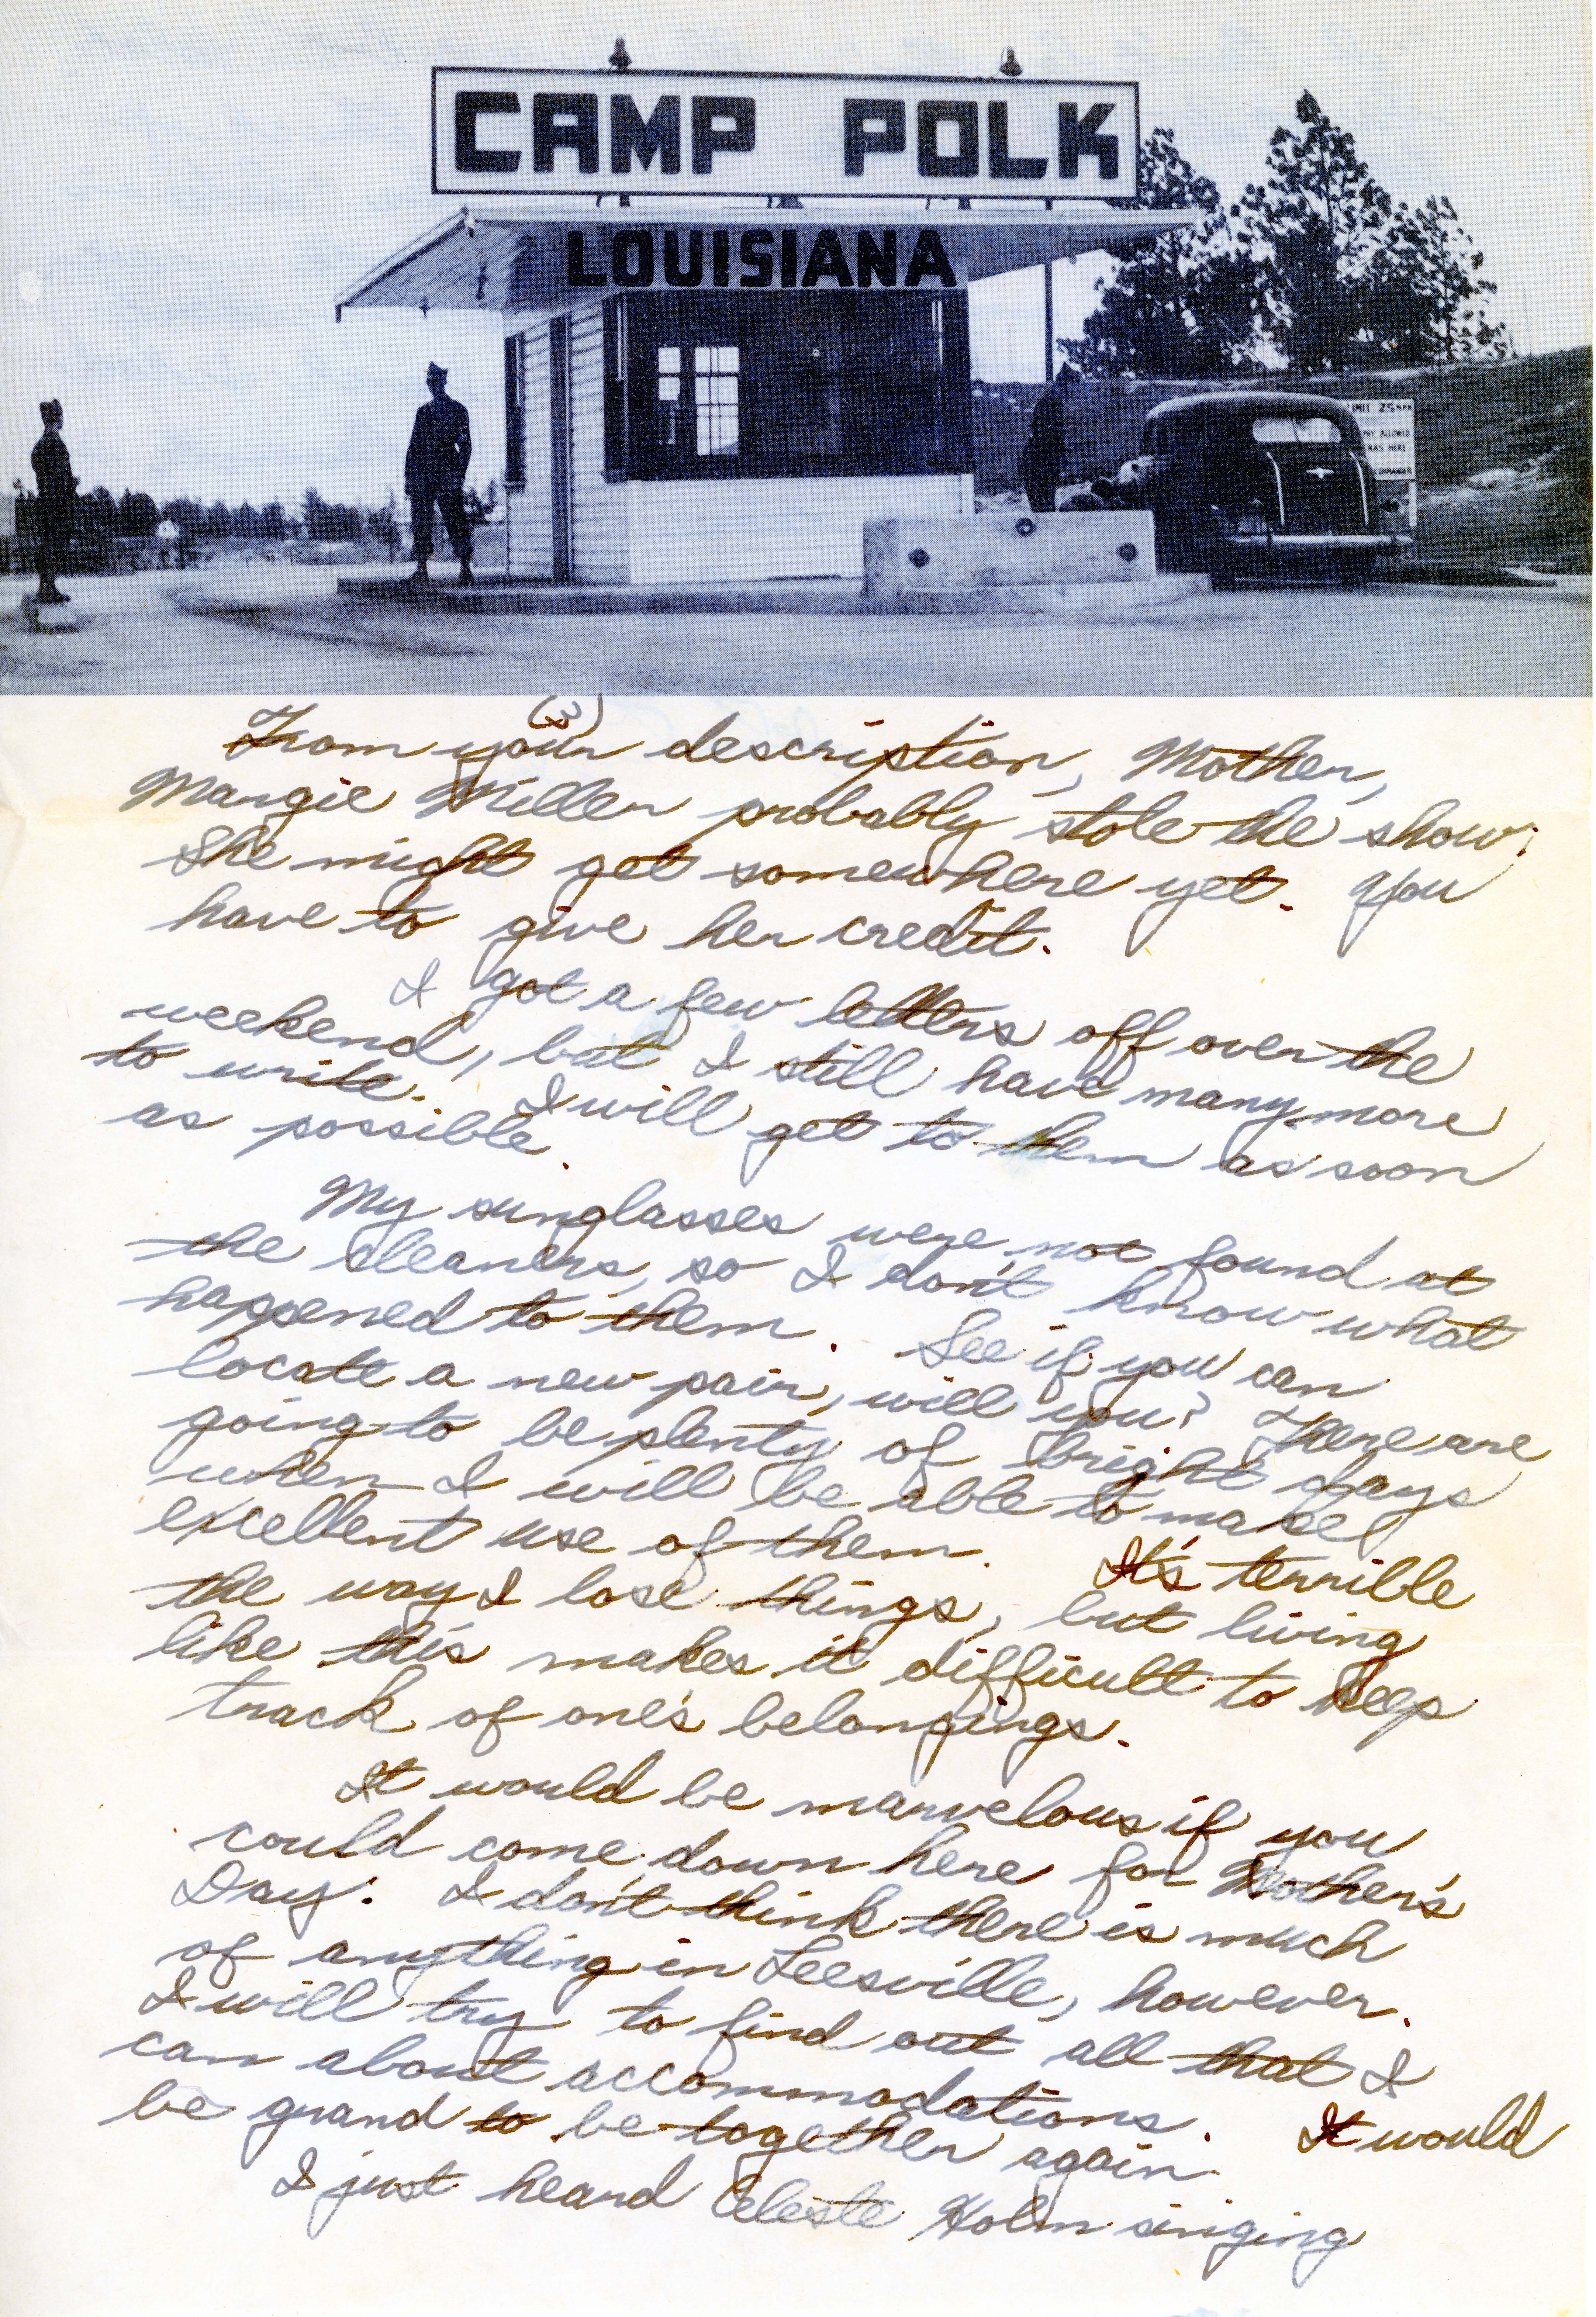 CAMP POLK
LOUISIANA
LIMIT 25 MPH
ALLOWED
HERE
COMMANDER
(3)
From your description, Mother,
Margie Miller probably stole the show;
She might get somewhere yet. You
have to give her credit.
I got a few letters off over the
weekend, but I still have many more
to write. I will get to them as soon
as possible.
My sunglasses were not found at
the cleaners, so I don't know what
happened to them. See if you can
locate a new pair, will you? There are
going to be plenty of bright days
when I will be able to make
excellent use of them. It's terrible
the way I lose things, but living
like this makes it difficult to keep
track of one's belongings.
It would be marvelous if you
could come down here for Mother's
Day. I don't think there is much
of anything in Leesville, however.
I will try to find out all that I
can about accommodations. It would
be grand to be together again.
I just heard Celeste Holm singing